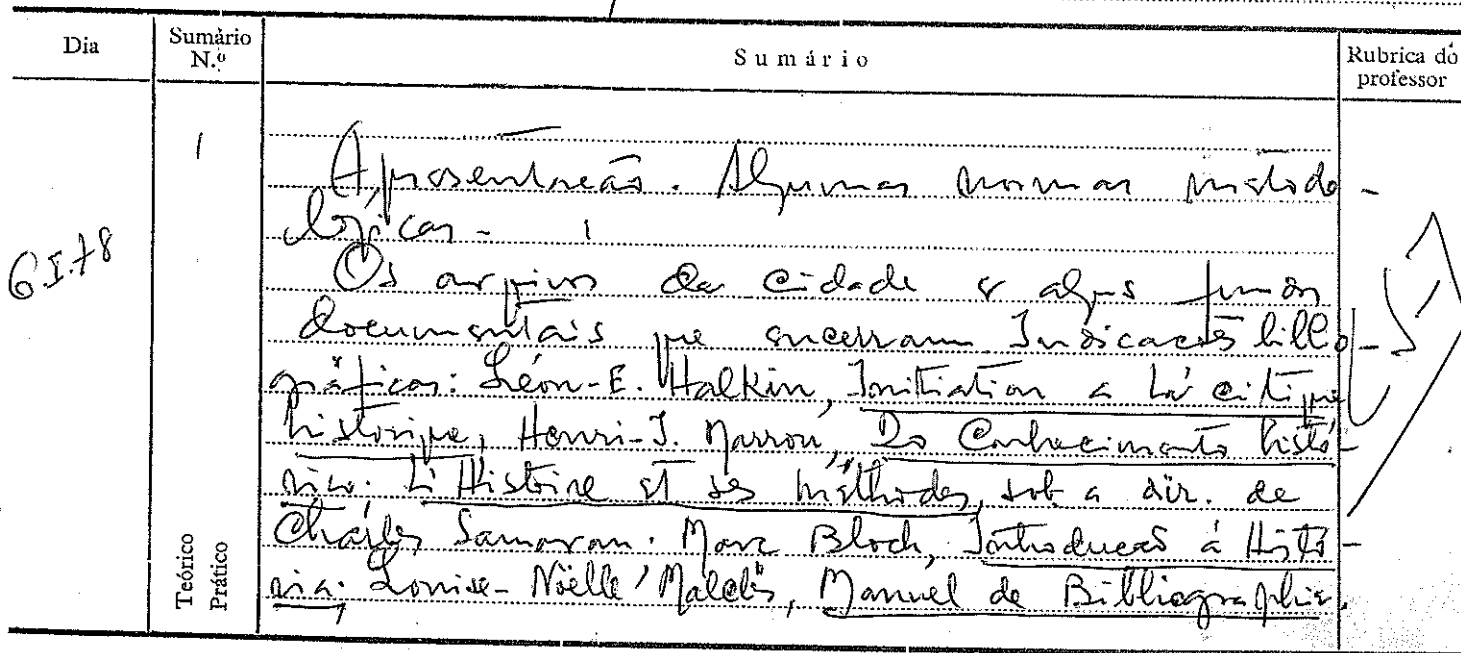 Dia
Sumário N.º
Sumário
Rubrica do professor
6.I.78
1
Apresentação. Algumas normas metodo-
lógicas.
Os arquivos da cidade e alguns fundos
documentais que encerram. Indicações biblio-
gráficas: Léon-E. Halkin, Initiation a la critique
historique, Henri-I. Marrou, Do Conhecimento histó-
rico. L'Histoire et ses méthodes, sob a dir. de
Charles Samaran. Marc Bloch, Introdução à Histó-
ria. Louise-Noëlle Malclès, Manuel de Bibliographie.
Teórico
Prático